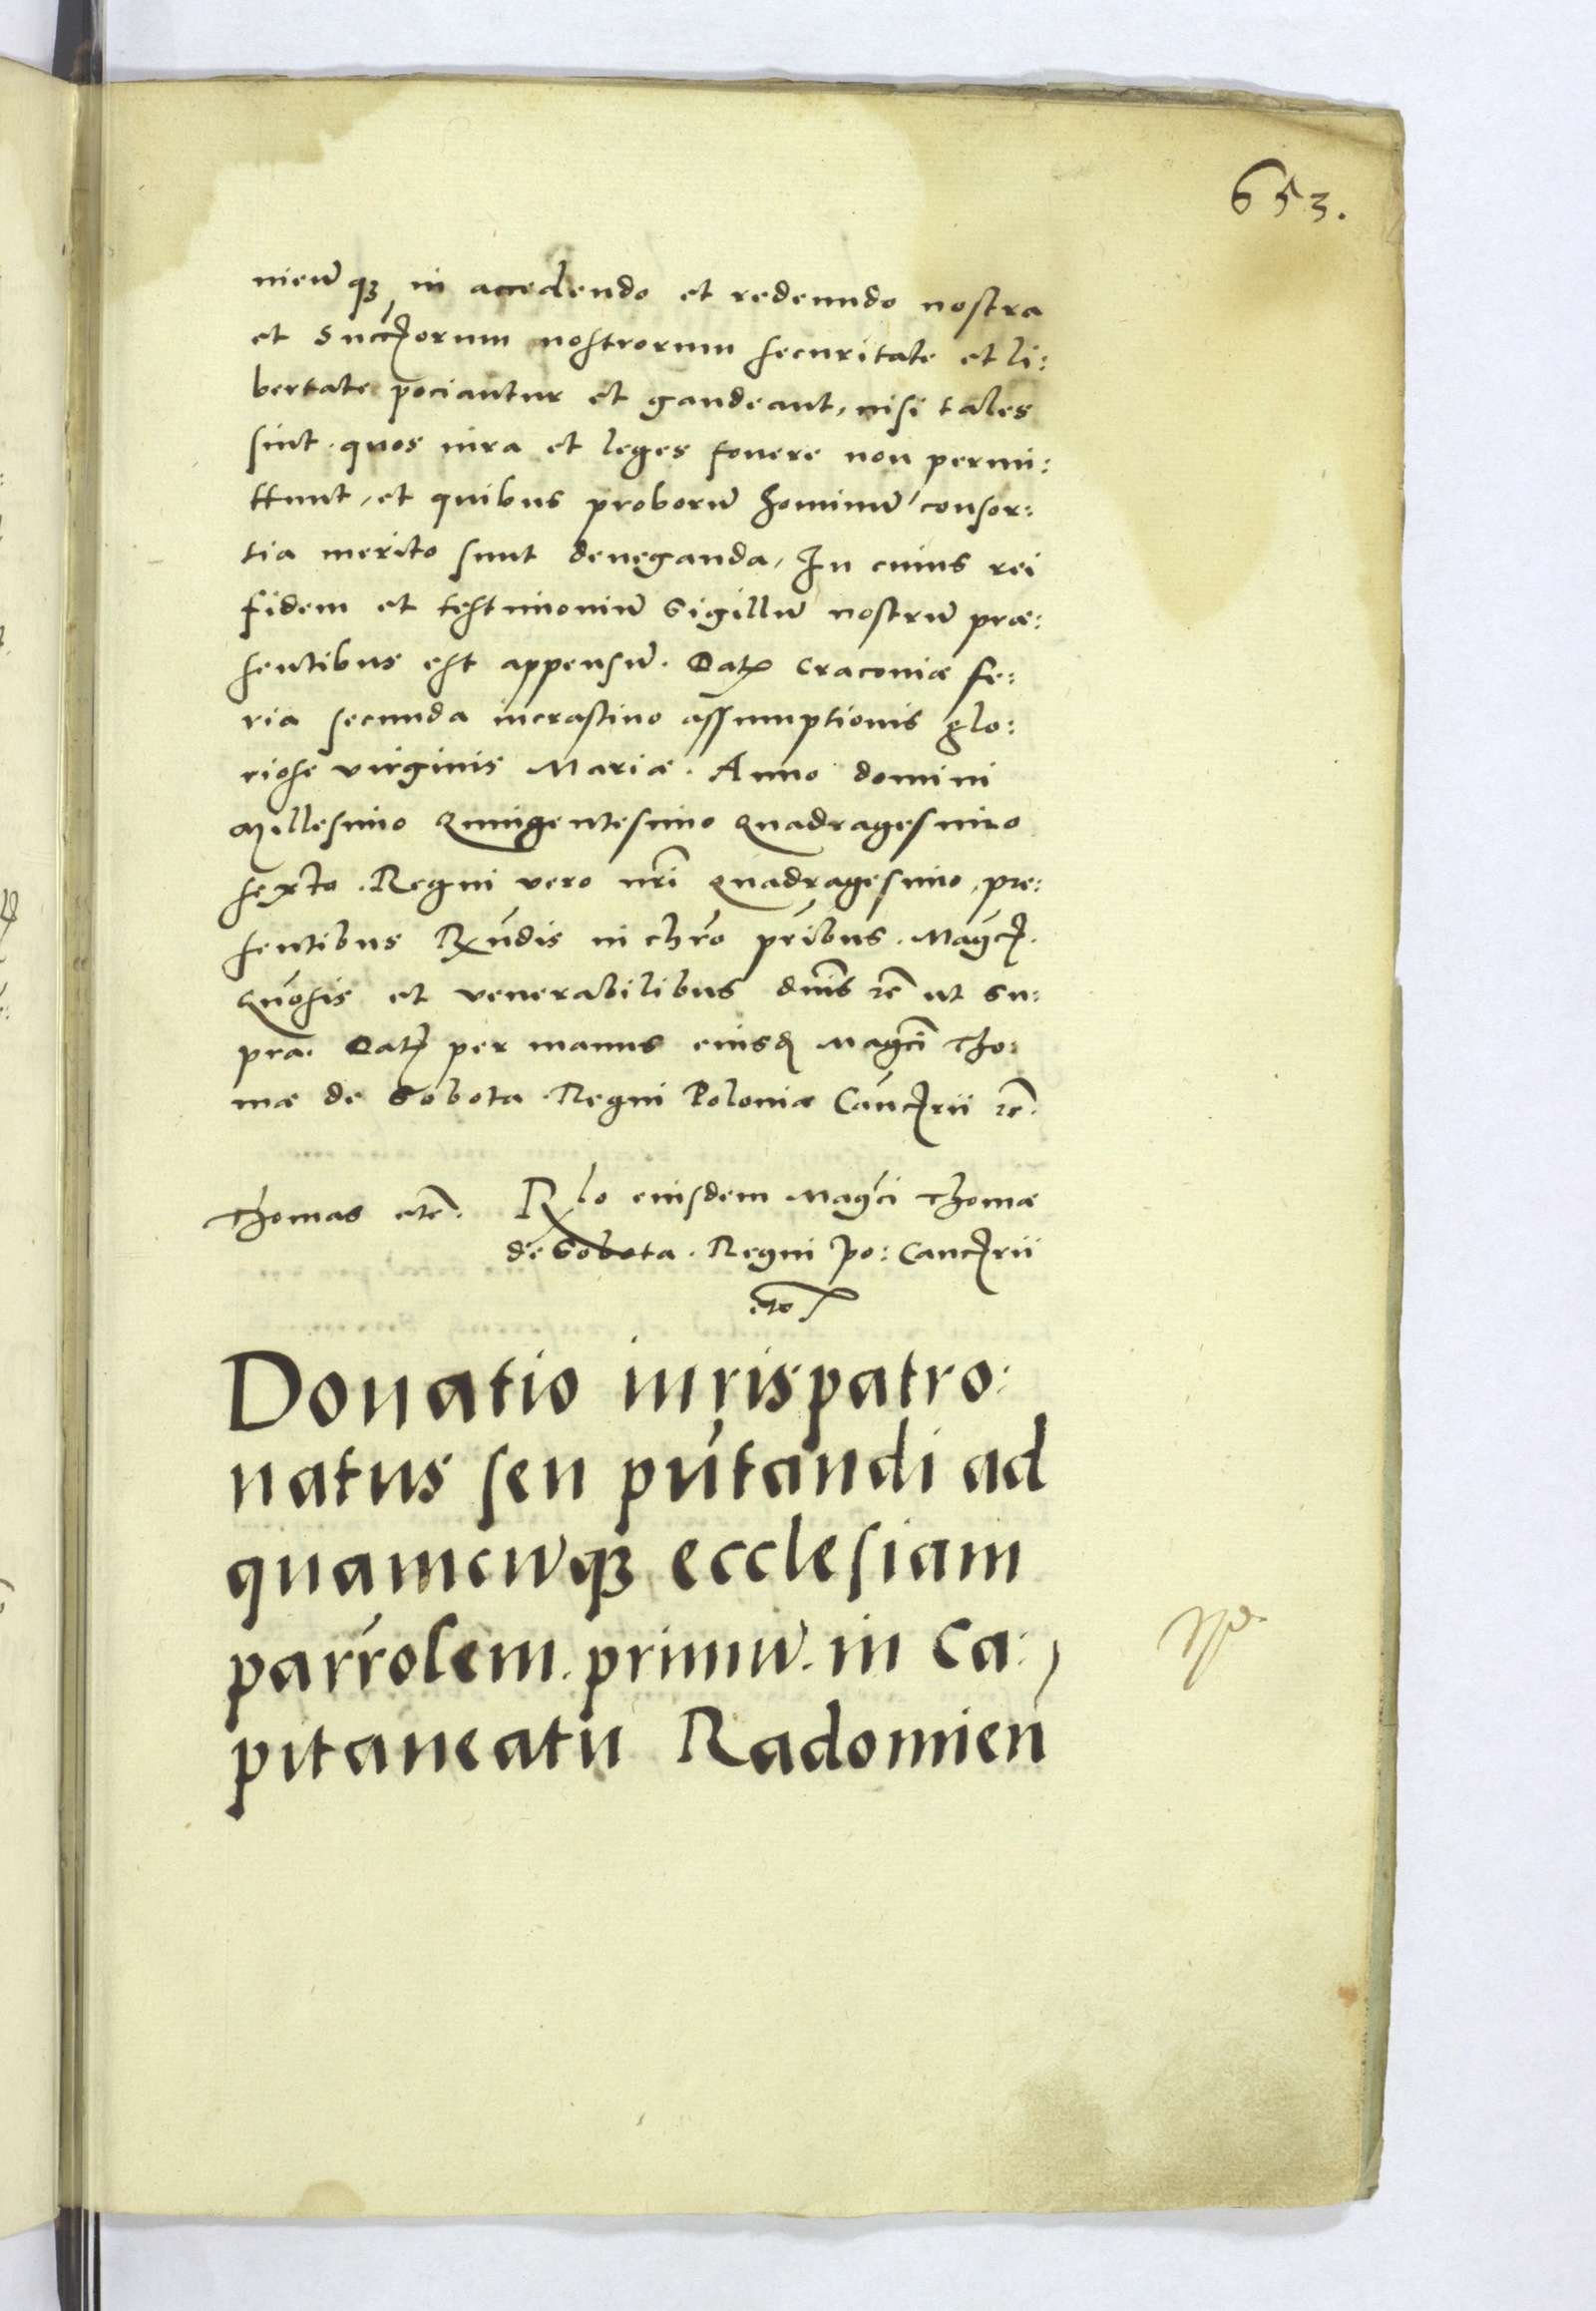 653.
nieūqꝫ in accedendo et redeundo nostra
et Succꝭorum nostrorum securitate et li:
bertate pociantur et gaudeant, nisi tales
sint. quos iura et leges fovere non permi:
ttunt, et quibus proborū hominū consor:
tia merito sunt deneganda, In cuius rei
fidem et testimoniū Sigillū nostrū præ:
sentibus est appensū. Datꝭ Cracoviæ fe:
ria secunda incrastino assumptionis glo:
riose virginis Mariæ. Anno domini
Millesimo Quingentesimo Quadragesimo
sexto. Regni vero nr̄i Quadragesimo, pre:
sentibus Rx́ndis in chŕo pŕibus. Magcꝭ.
Gńosis et venerabilibus dn̄is ꝛc̄ ut su:
pra. Datꝭ per manus eiusd̨ Magc̄i Tho:
mæ de Sobota. Regni Poloniæ Cańcꝭrii ꝛc̄.
Thomas etc̄. Rlo eiusdem Magći Thomæ
de Sobota. Regni Po: Cancꝭrii
etc
Donatio iurispatro:
natus seu pńtandi ad
quamcūqꝫ ecclesiam
parŕolem. primū. in Ca:
pitaneatu Radomień